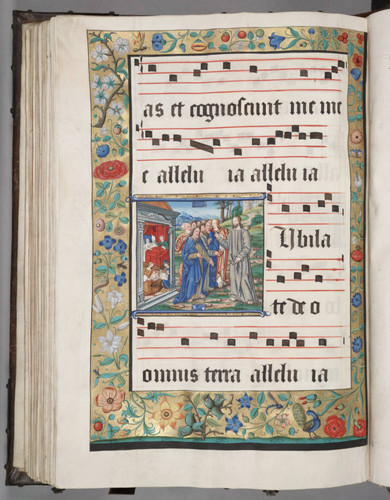 as et cognoscunt me me
e allelu ia allelu ia
Ubila
te de o
omnis terra allelu ia